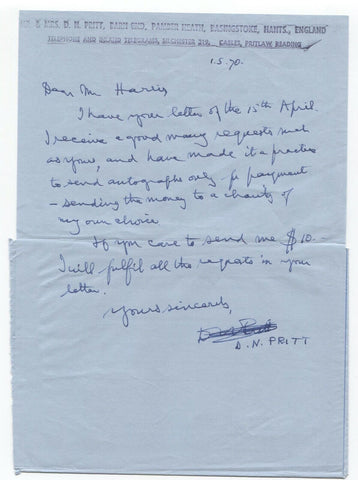 MR. & MRS. D. N. PRITT, BARN END, PAMBER HEATH, BASINGSTOKE, HANTS., ENGLAND
TELEPHONE AND INLAND TELEGRAMS, SILCHESTER CABLES, PRITLAW READING
1.5.70.
Dear Mr Harris
I have your letter of the 15th April.
I receive a good many requests such
as yours, and have made it a practice
to send autographs only for payment
– sending the money to a charity of
my own choice
If you care to send me $10.–
I will fulfil all the requests in your
letter.
Yours sincerely,
D. N. PRITT